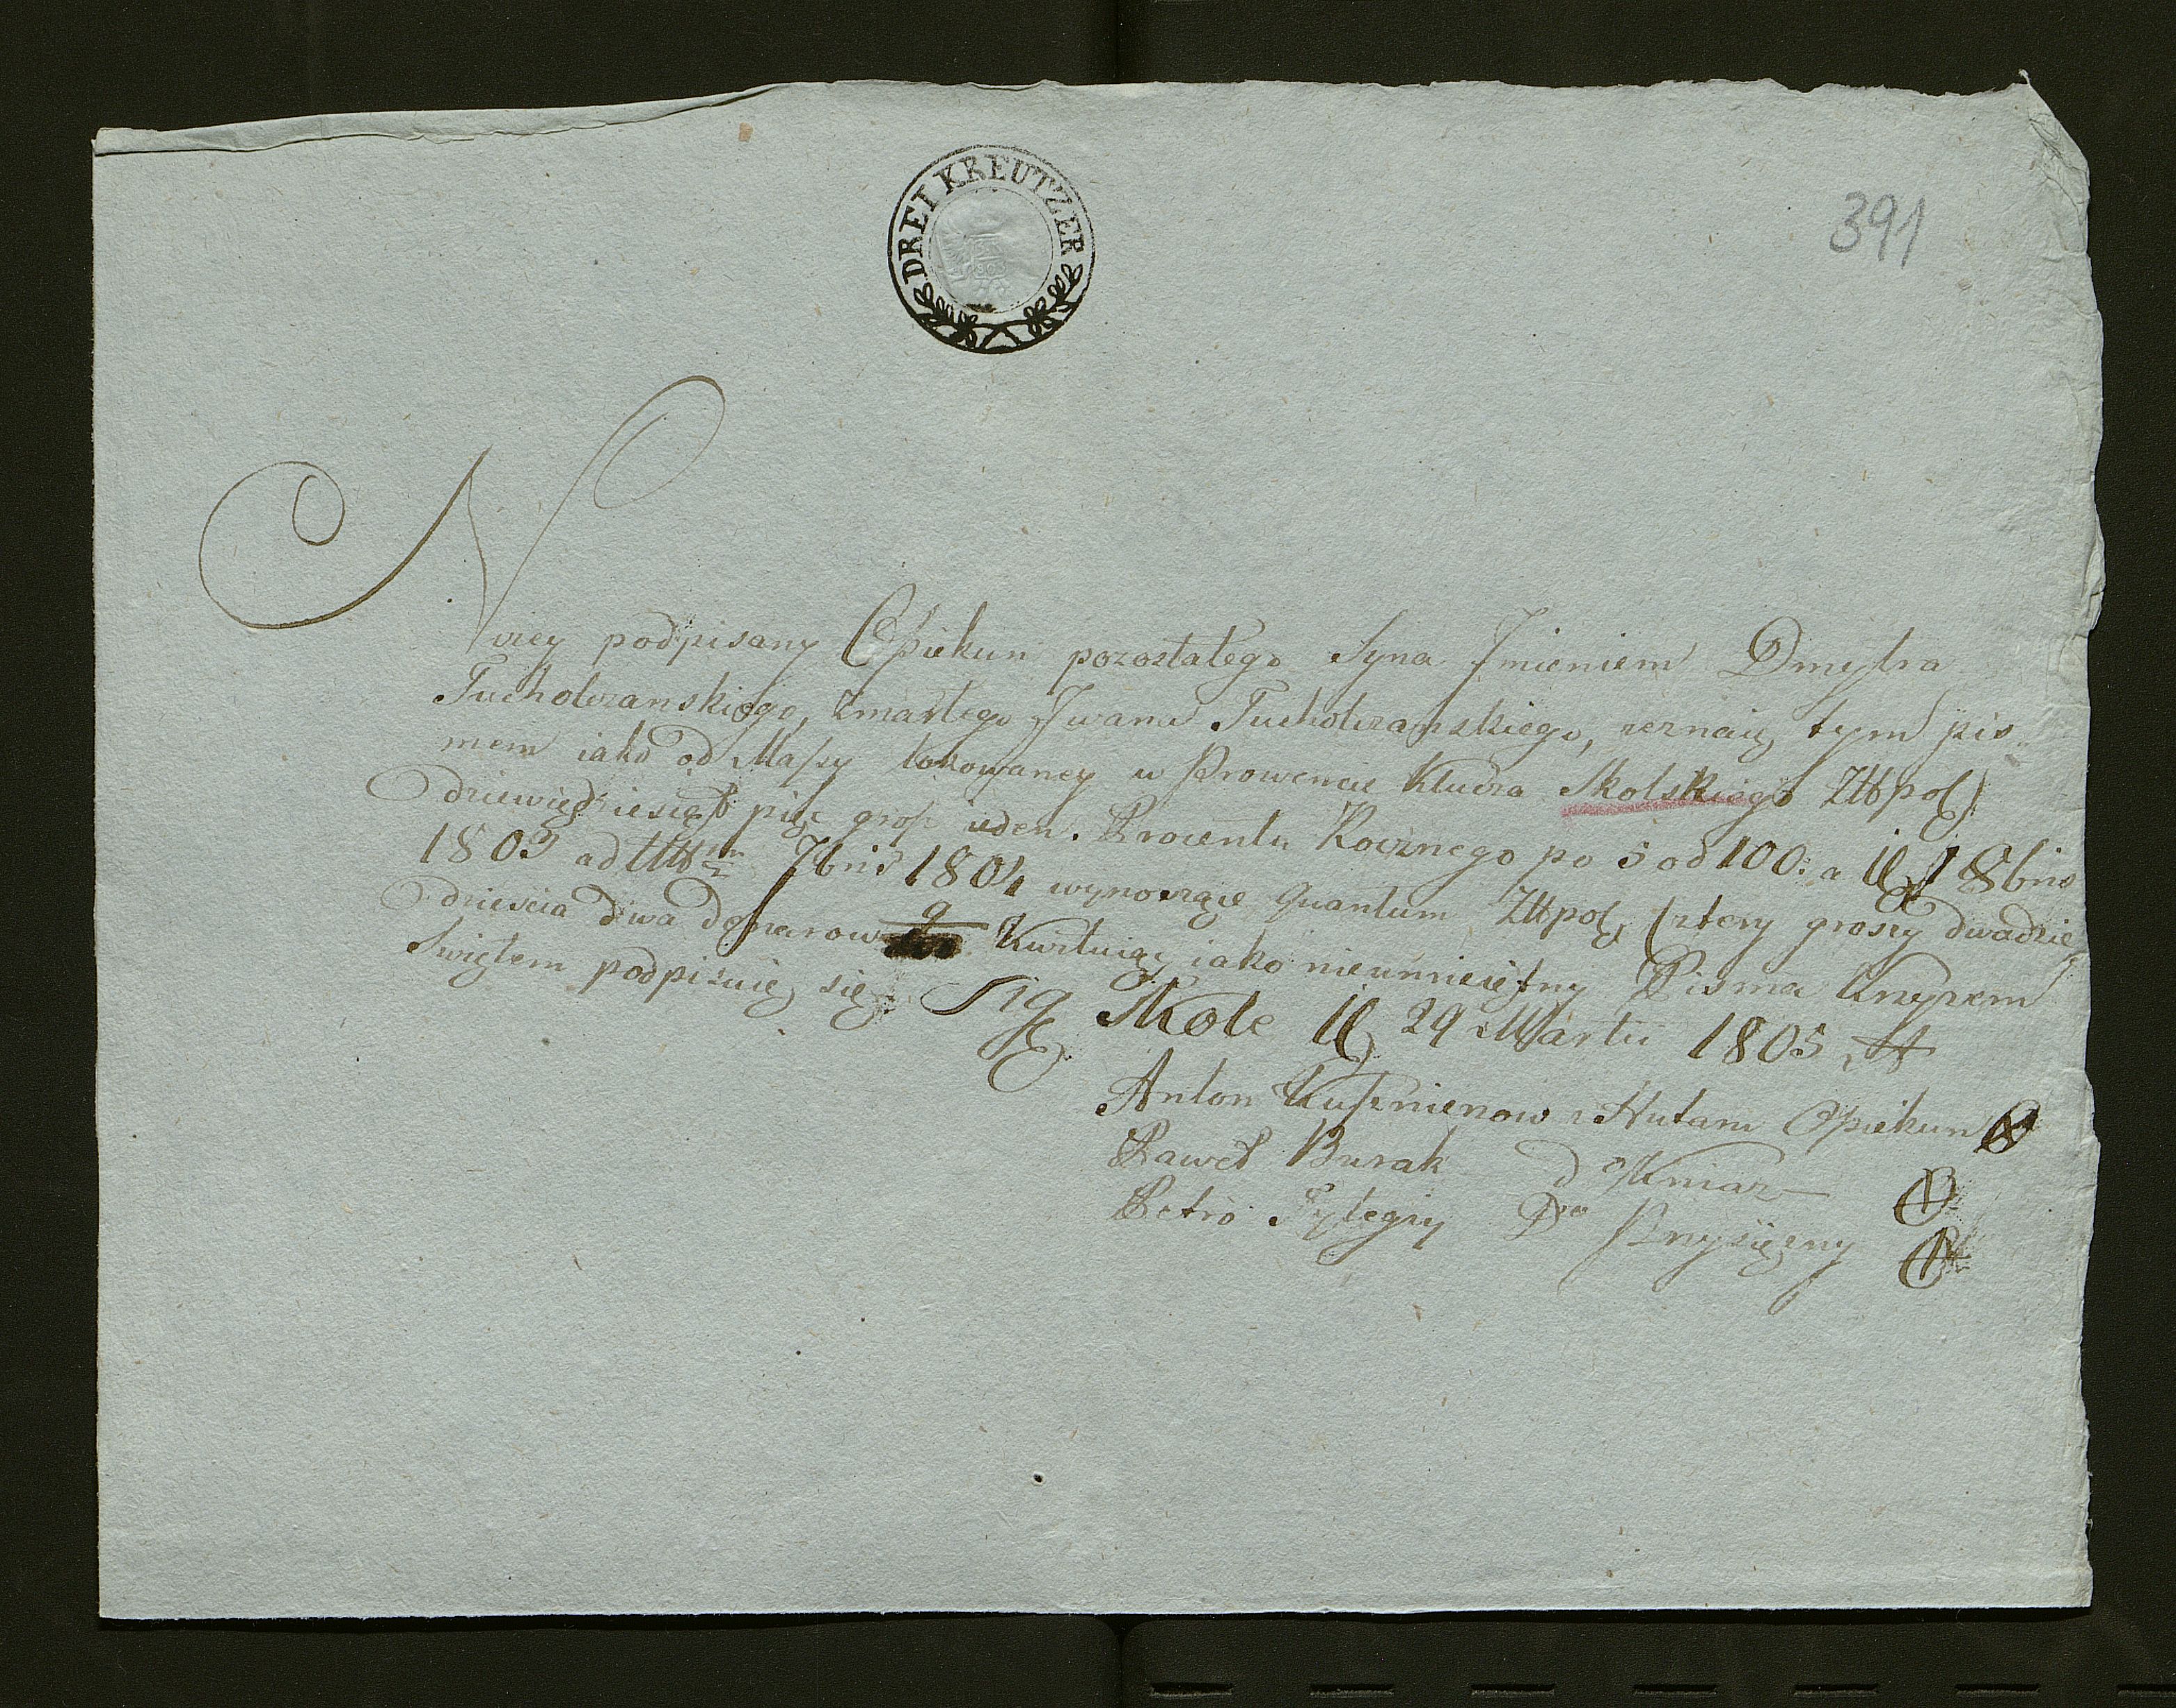 DREI KREUTZER
1803
391
Niżey podpisany Opiekun pozostałego Syna Jmieniem Dmytra
Tucholczanskiego, zmarłego Jwana Tucholczanskiego, zeznaię tym pis
mem iako od Massy lokowaney w Prowencie Klucza Skolskiego Zttpol
dziewiędziesiąt pięc grosz ieden. Procentu Rocznego po 5 od 100. a 8bris
1803 ad 7bris 1804 wynoszące Quantum Zttpol cztery groszy dwadzie
dzieścia dwa denarow 9 Kwituięc iako nieumieiętny Pisma Krzyzem
Swiętem podpisuię się. Sig Skole 29 Martii 1805
Anton Kusznierow z Hutaru Opiekun
Paweł Burak do Kniaz
Petro Do Przysięzny